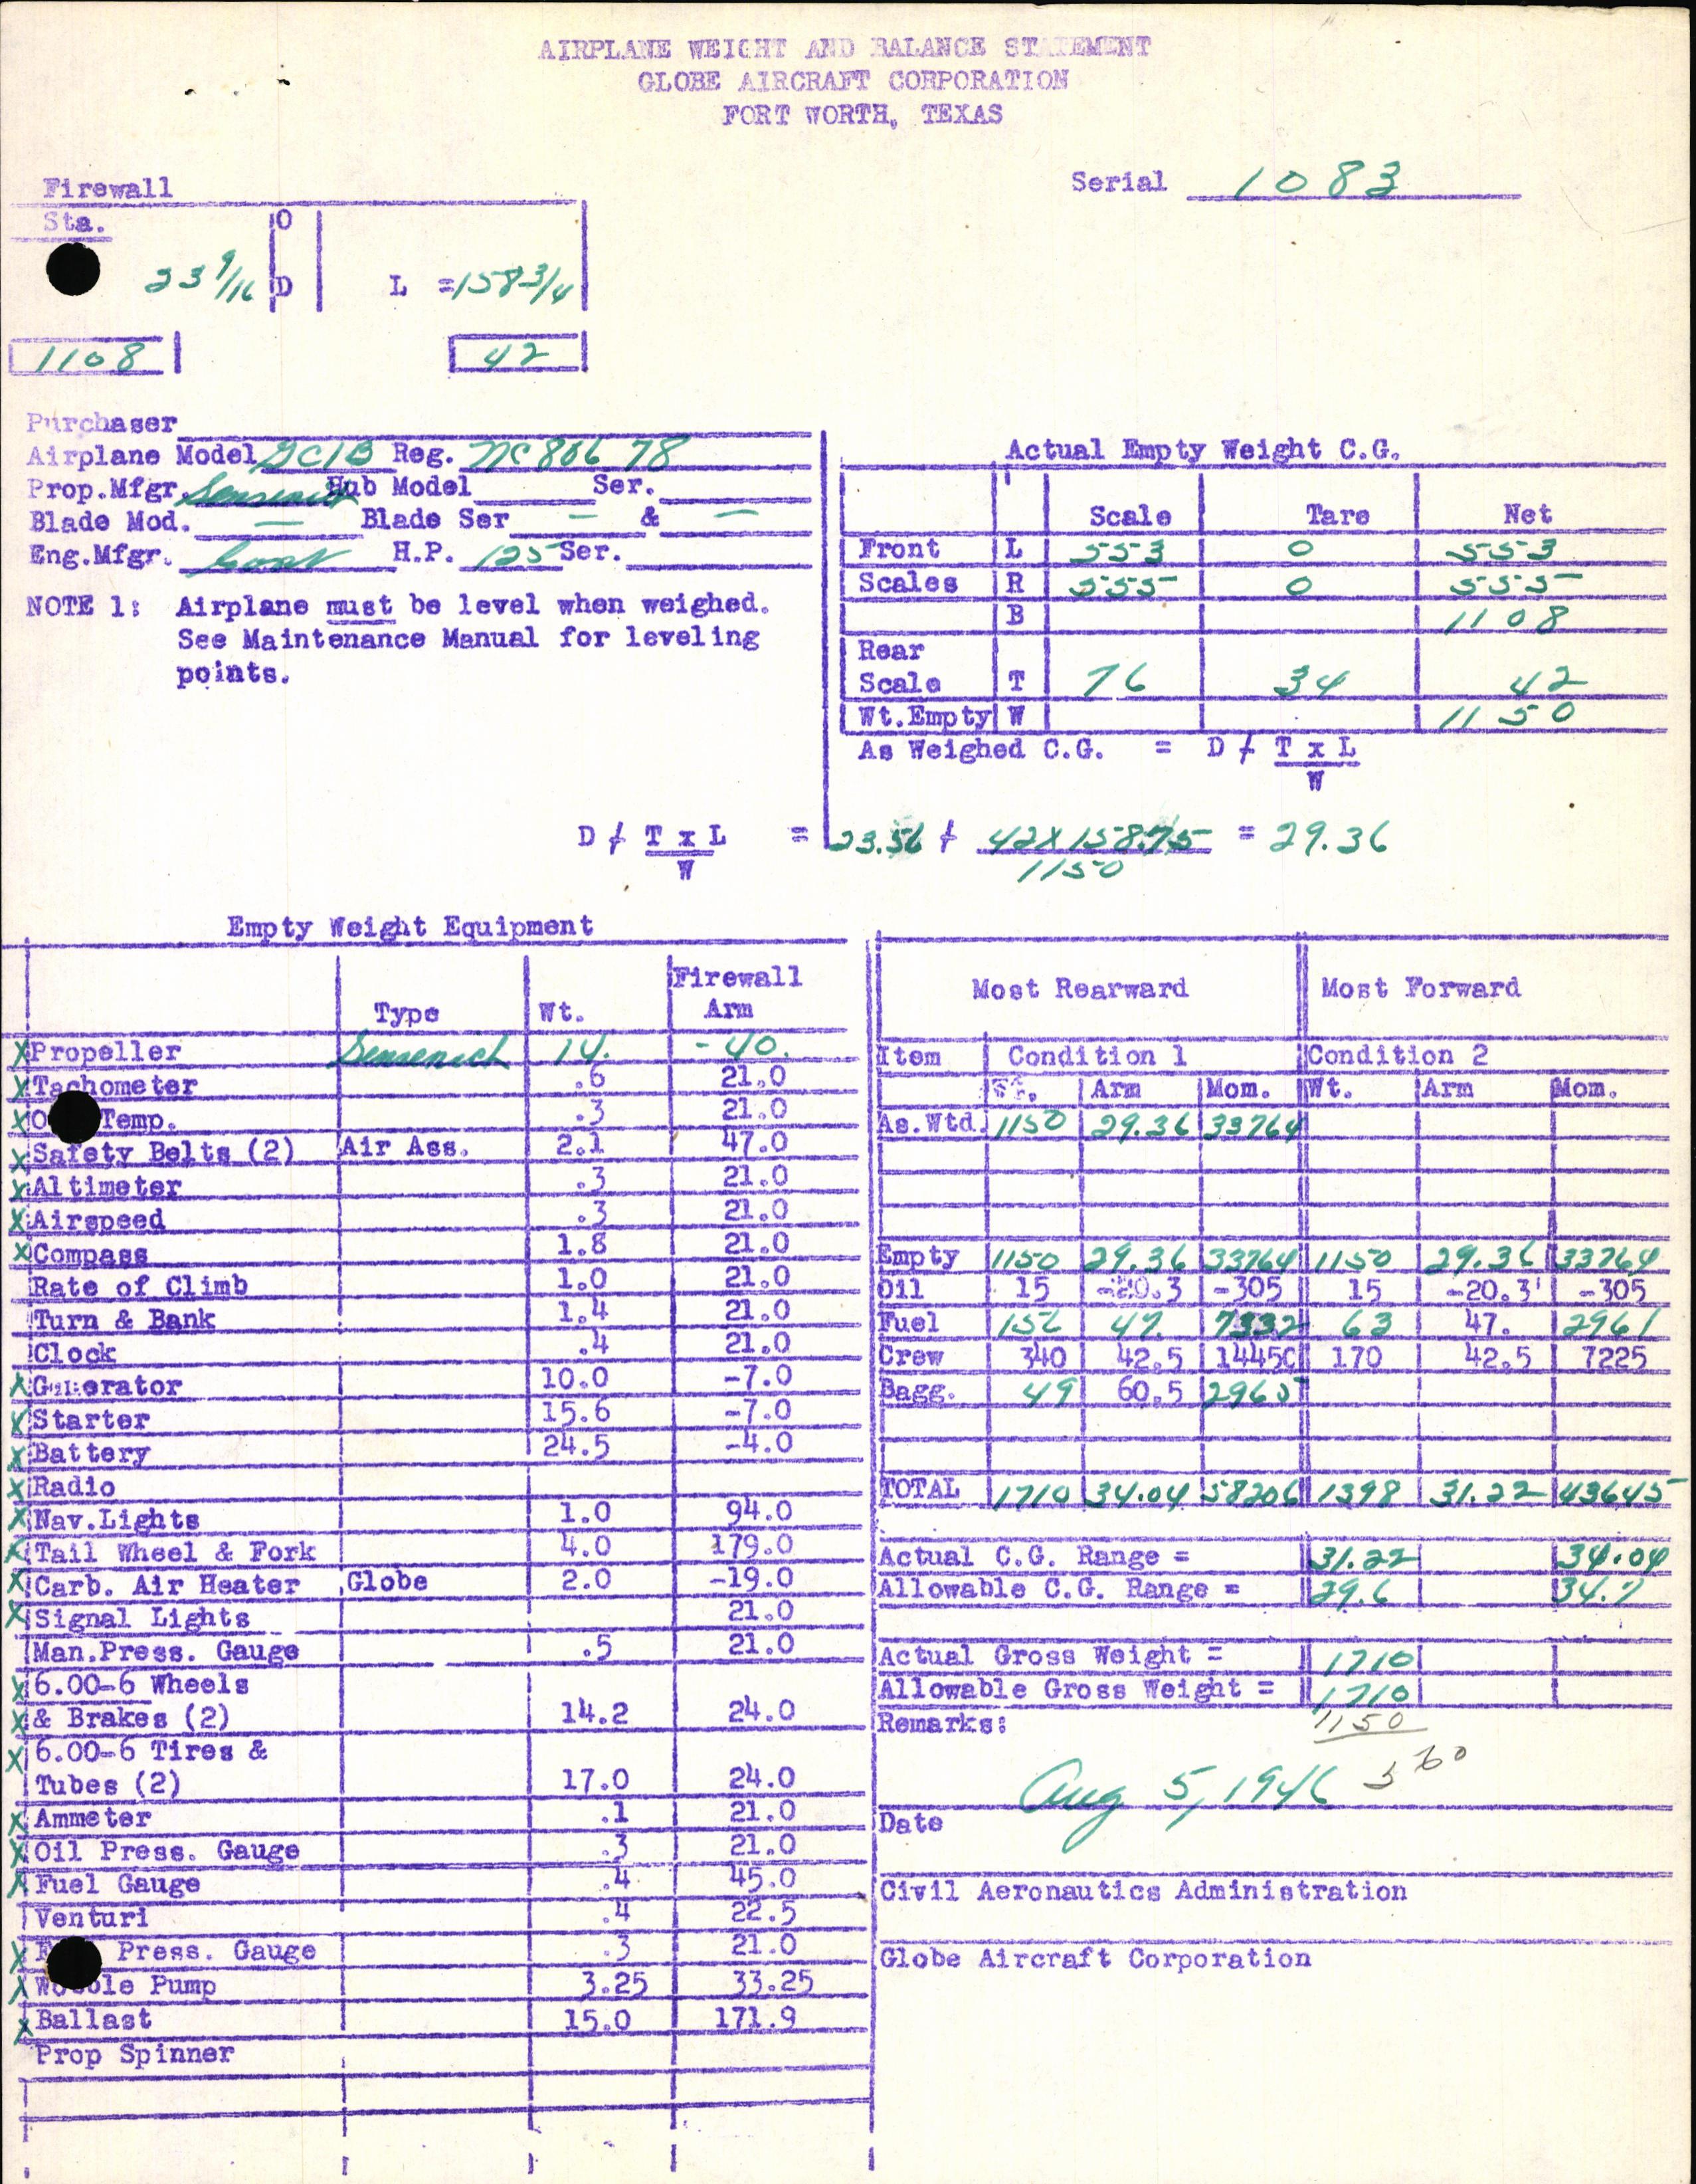 AIRPLANE WEIGHT AND BALANCE STATEMENT
GLOBE AIRCRAFT CORPORATION
FORT WORTH, TEXAS
Serial 1083
Firewall
Sta. O
23 9/16 D L = 158 3/4
1108 42
Purchaser
Airplane Model GC1B Reg. NC 80678
Prop.Mfgr. Sensenich Hub Model Ser.
Blade Mod. — Blade Ser — & —
Eng.Mfgr. H.P. 125 Ser.
NOTE 1: Airplane must be level when weighed.
See Maintenance Manual for leveling
points.
Actual Empty Weight C.G.
Scale Tare Net
Front L 553 0 553
Scales R 555 0 555
B 1108
Rear
Scale T 76 34 42
Wt.Empty W 1150
As Weighed C.G. = D + T x L
W
D + T x L = 23.56 + 42 X 158.75 = 29.36
W 1150
Empty Weight Equipment
Type Wt. Firewall Arm
X Propeller Sensenich 14. -40.
X Tachometer .6 21.0
X O Temp. .3 21.0
X Safety Belts (2) Air Ass. 2.1 47.0
X Altimeter .3 21.0
X Airspeed .3 21.0
X Compass 1.8 21.0
Rate of Climb 1.0 21.0
Turn & Bank 1.4 21.0
Clock .4 21.0
X Generator 10.0 -7.0
X Starter 15.6 -7.0
X Battery 24.5 -4.0
X Radio
X Nav.Lights 1.0 94.0
X Tail Wheel & Fork 4.0 179.0
X Carb. Air Heater Globe 2.0 -19.0
X Signal Lights 21.0
Man.Press. Gauge .5 21.0
X 6.00-6 Wheels
X & Brakes (2) 14.2 24.0
X 6.00-6 Tires &
Tubes (2) 17.0 24.0
X Ammeter .1 21.0
X Oil Press. Gauge .3 21.0
X Fuel Gauge .4 45.0
Venturi .4 22.5
X Press. Gauge .3 21.0
X Wobble Pump 3.25 33.25
X Ballast 15.0 171.9
Prop Spinner
Most Rearward Most Forward
Item Condition 1 Condition 2
Wt. Arm Mom. Wt. Arm Mom.
As.Wtd. 1150 29.36 33764
Empty 1150 29.36 33764 1150 29.36 33764
Oil 15 -20.3 -305 15 -20.3 -305
Fuel 156 47. 7332 63 47. 2961
Crew 340 42.5 14450 170 42.5 7225
Bagg. 49 60.5 2965
TOTAL 1710 34.04 58206 1398 31.22 43645
Actual C.G. Range = 31.22 34.04
Allowable C.G. Range = 29.6 34.7
Actual Gross Weight = 1710
Allowable Gross Weight = 1710
Remarks: 1150
560
Aug 5, 1946
Date
Civil Aeronautics Administration
Globe Aircraft Corporation